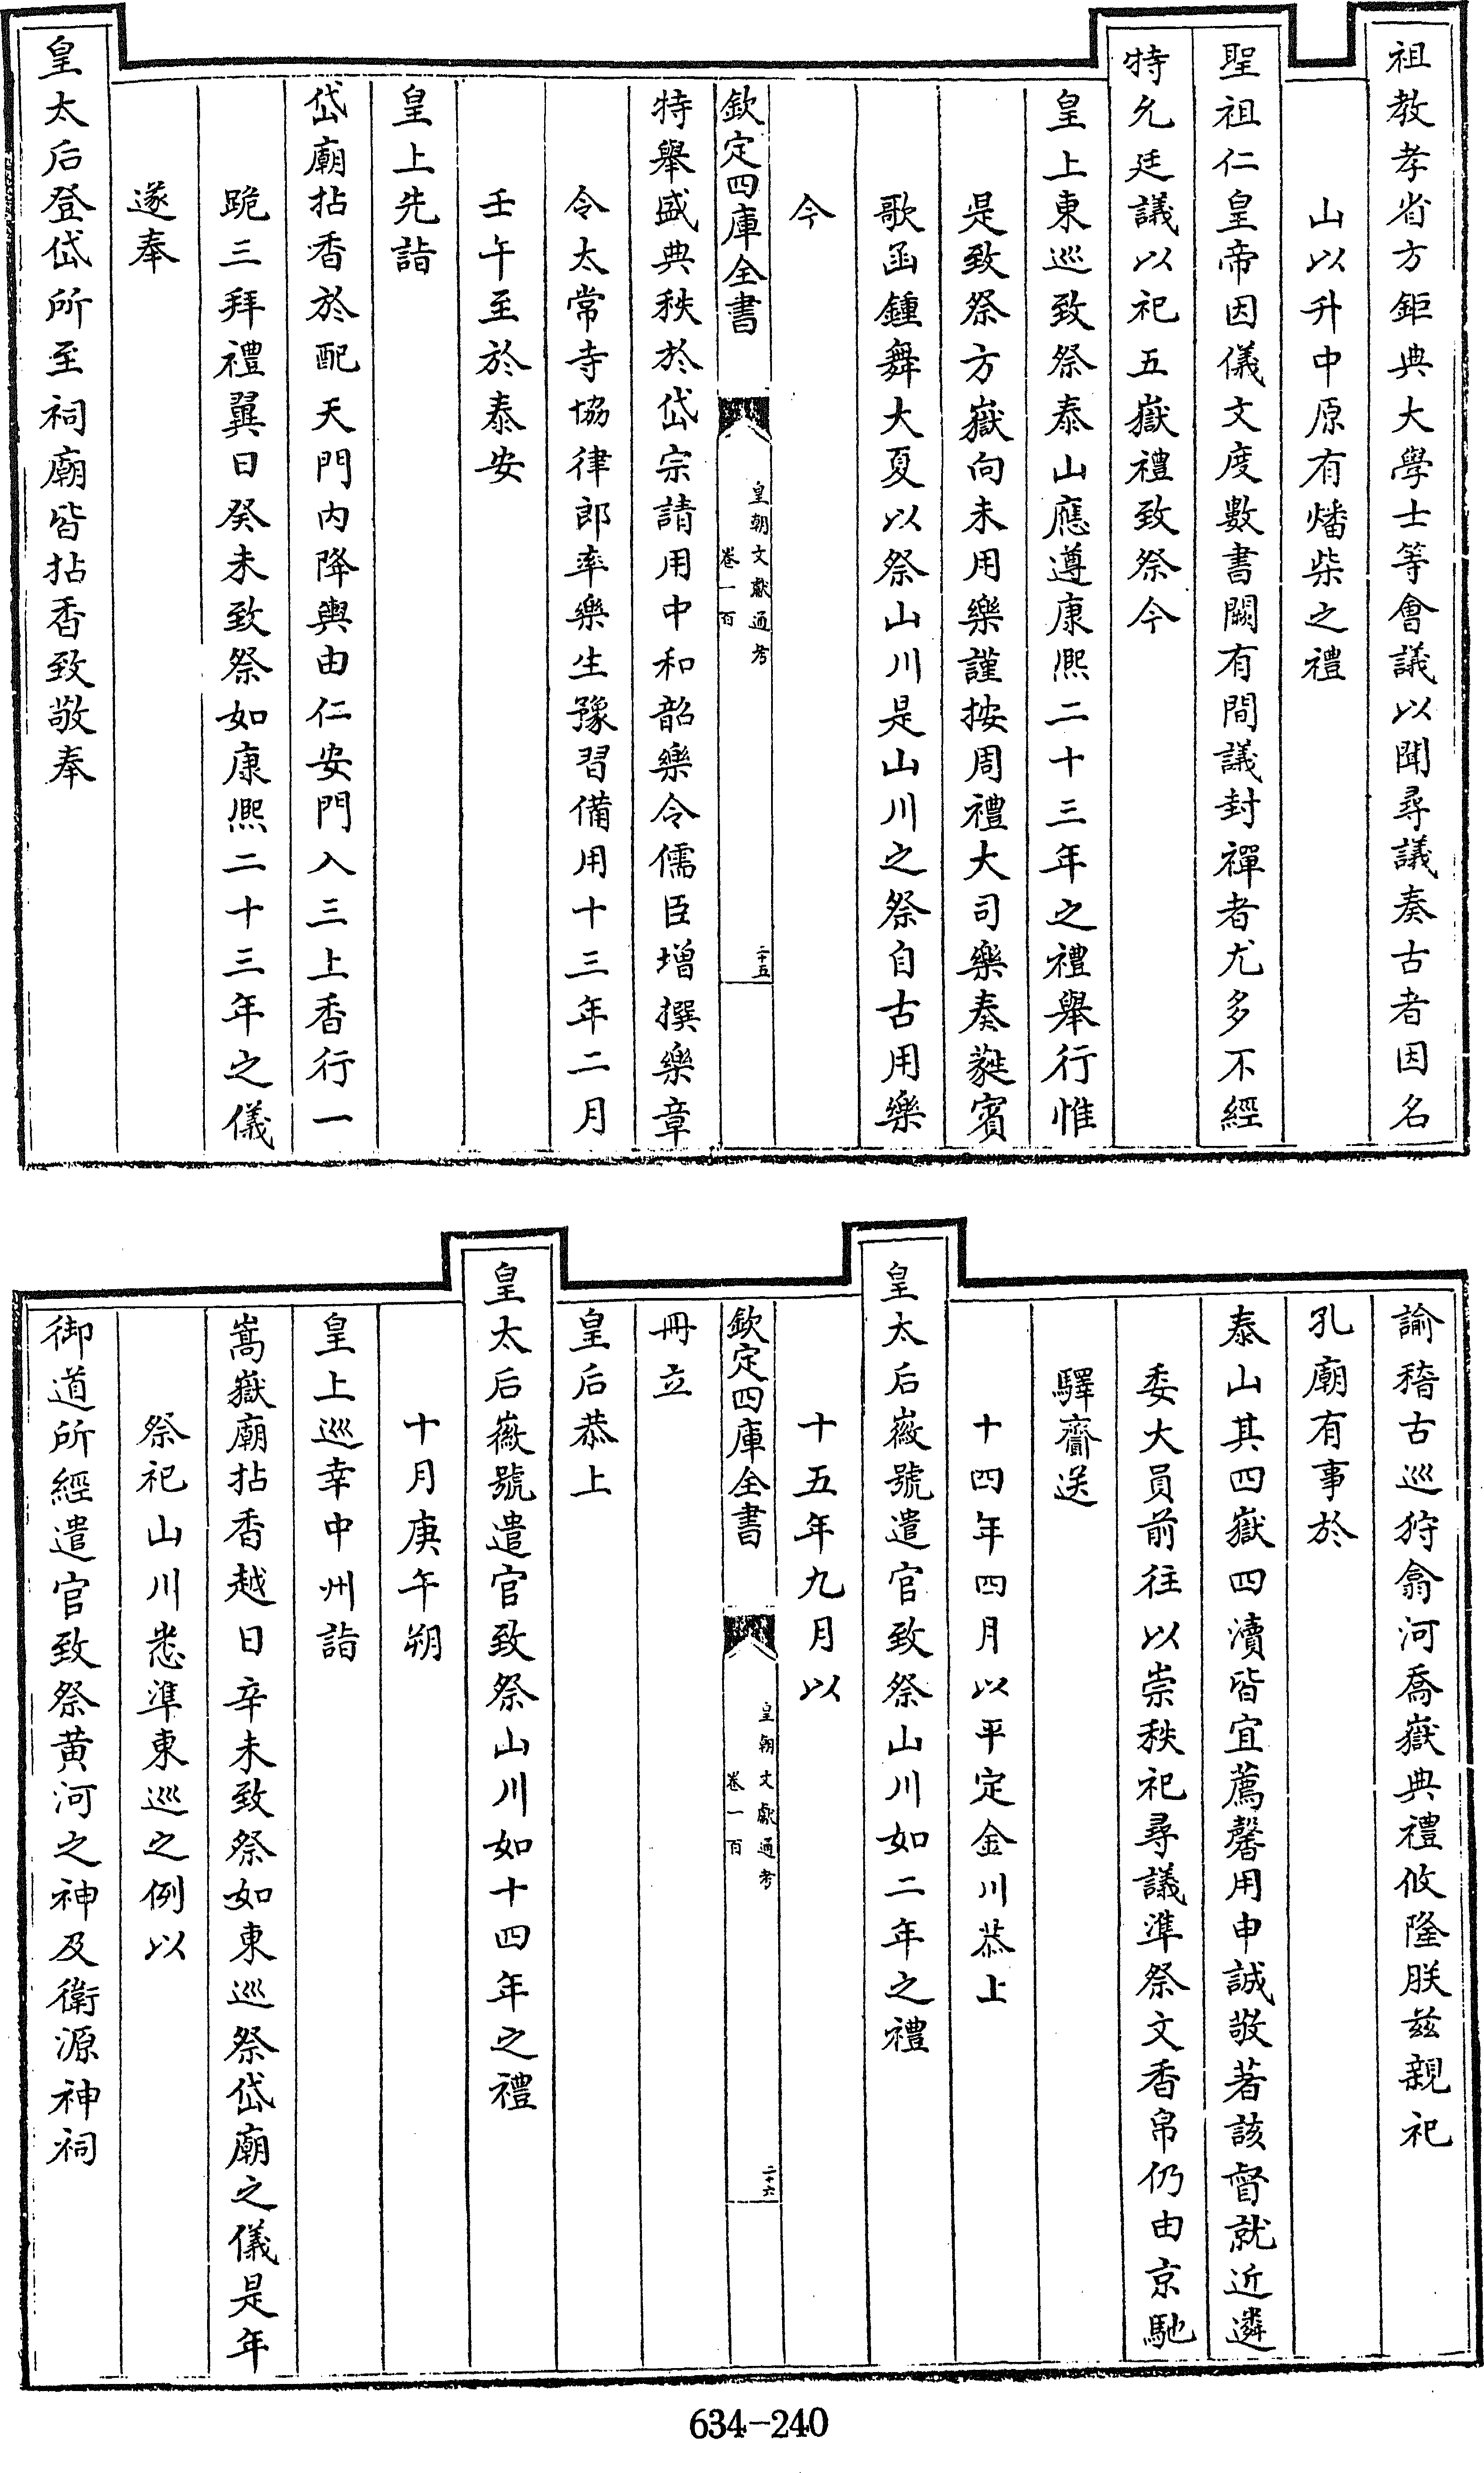 祖教孝省方鉅典大學士等會議以聞尋議奏古者因名
山以升中原有燔柴之禮
聖祖仁皇帝因儀文度數書闕有間議封禪者尤多不經
特允廷議以祀五嶽禮致祭今
皇上東巡致祭泰山應遵康熙二十三年之禮舉行惟
是致祭方嶽向未用樂謹按周禮大司樂奏蕤賓
歌函鍾舞大夏以祭山川是山川之祭自古用樂
今
欽定四庫全書
皇朝文獻通考
卷一百
二十五
特舉盛典秩於岱宗請用中和韶樂令儒臣增撰樂章
令太常寺協律郎率樂生豫習備用十三年二月
壬午至於泰安
皇上先詣
岱廟拈香於配天門內降輿由仁安門入三上香行一
跪三拜禮翼日癸未致祭如康熙二十三年之儀
遂奉
皇太后登岱所至祠廟皆拈香致敬奉
諭稽古巡狩翕河喬嶽典禮攸隆朕茲親祀
孔廟有事於
泰山其四嶽四瀆皆宜薦馨用申誠敬著該督就近遴
委大員前往以崇秩祀尋議準祭文香帛仍由京馳
驛齎送
十四年四月以平定金川恭上
皇太后徽號遣官致祭山川如二年之禮
十五年九月以
欽定四庫全書
皇朝文獻通考
卷一百
二十六
冊立
皇后恭上
皇太后徽號遣官致祭山川如十四年之禮
十月庚午朔
皇上巡幸中州詣
嵩嶽廟拈香越日辛未致祭如東巡祭岱廟之儀是年
祭祀山川悉準東巡之例以
御道所經遣官致祭黃河之神及衛源神祠
634-240